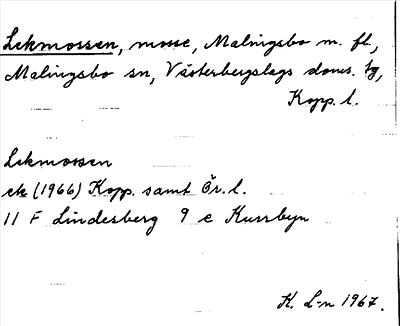 Lekmossen, mosse, Malingsbo m. fl.,
Malingsbo sn, Västerbergslags doms. tg,
Kopp. l.
Lekmossen
ek (1966) Kopp. samt Ör. l.
11 F Lindesberg 9 e Kursbyn
K. L-n 1967.